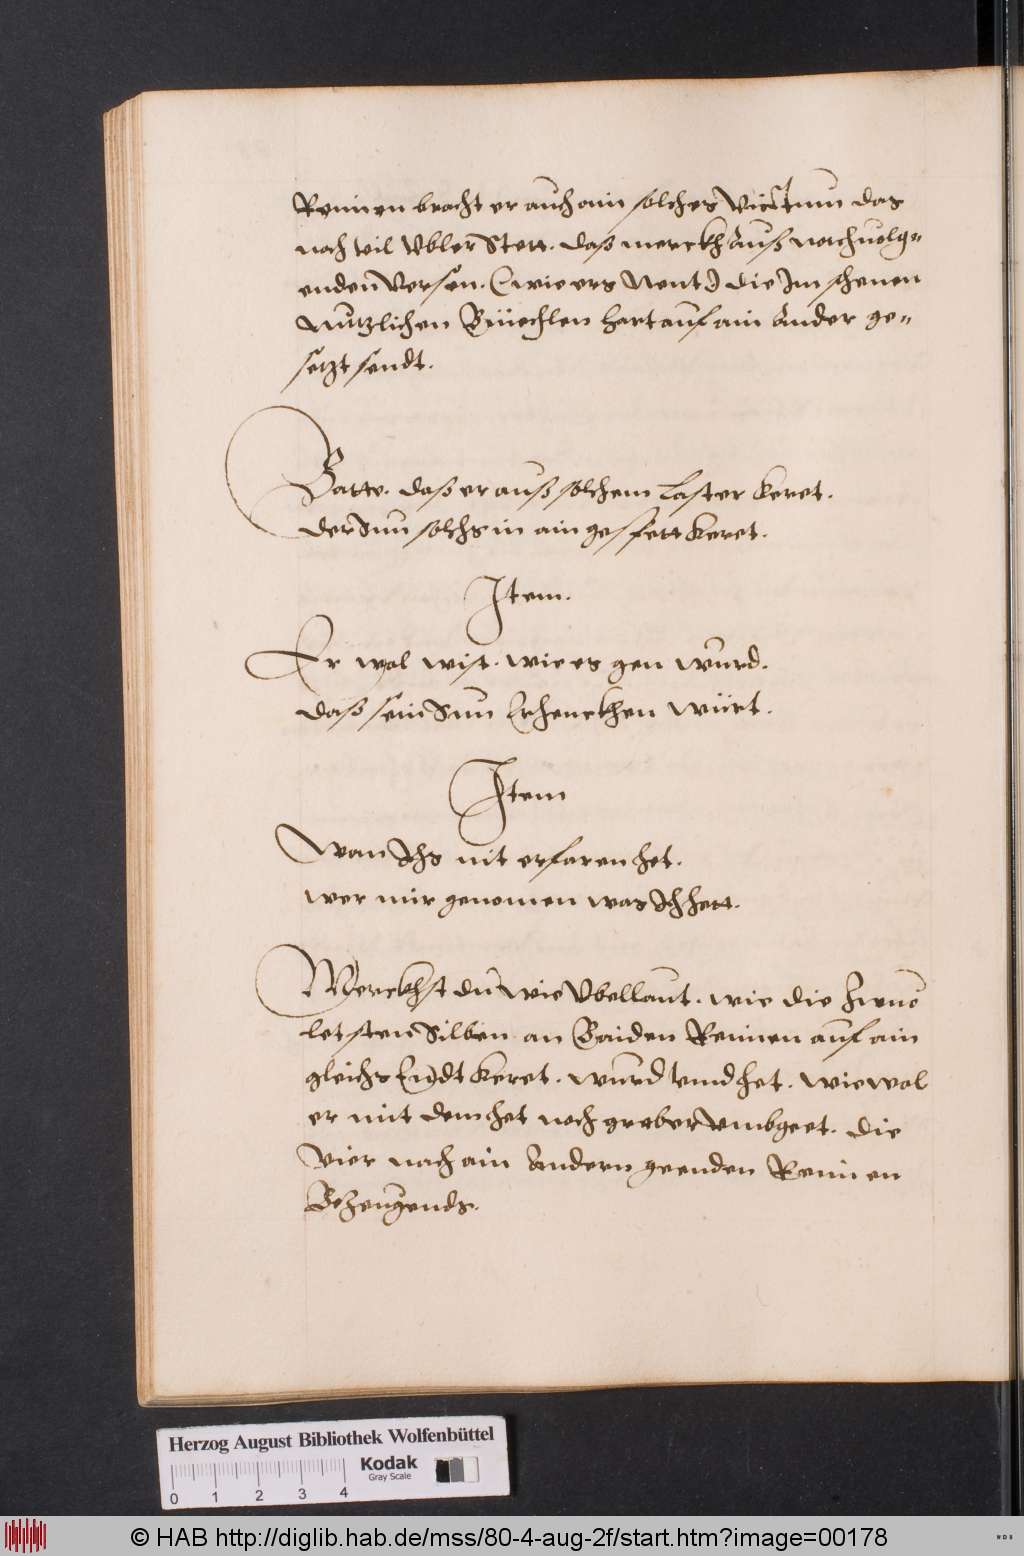 Reimen bracht er auch ain solches Vicium das
noch vil Vbler Stett. daß merckh Auß nachuolg=
enden Versen. (wie ers Nent) die Im schenen
Nutzlichen Büechlen hart auf ain Ander ge=
setzt sendt.
Batte. daß er auß solchem Laster keret.
der Sun solchs in ain gespett keret.
Item.
Er wol wist. wie es gen wurd.
daß sein Sun Erhenckhen würt.
Item
Wan Ichs nit erfaren het.
wer mir genomen was Ich hett.
Merckhst du wie Vbel laut. wie die Zwuo
letsten Silben an Baiden Reimen auf ain
gleichs Endt keret. wurd vnnd het. wie wol
er mit dem het noch grober vmbgeet. die
Vier nach ain Andern geenden Reimen
Bezeugends.
Herzog August Bibliothek Wolfenbüttel
Kodak
Gray Scale
0 1 2 3 4
© HAB http://diglib.hab.de/mss/80-4-aug-2f/start.htm?image=00178